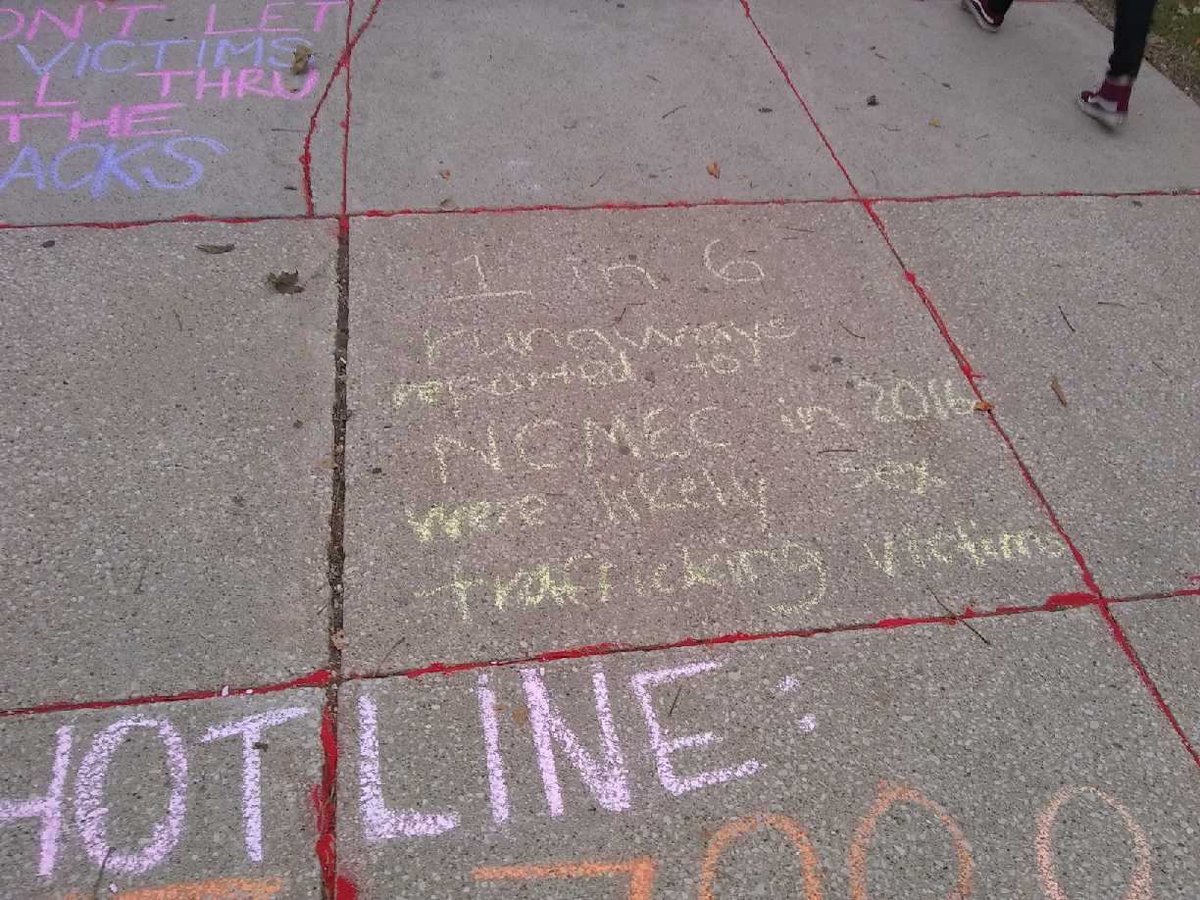 ON'T LET
VICTIMS
LL THRU
THE
ACKS
1 in 6
runaways
reported to
NCMEC in 2016
were likely sex
trafficking victims
HOTLINE: